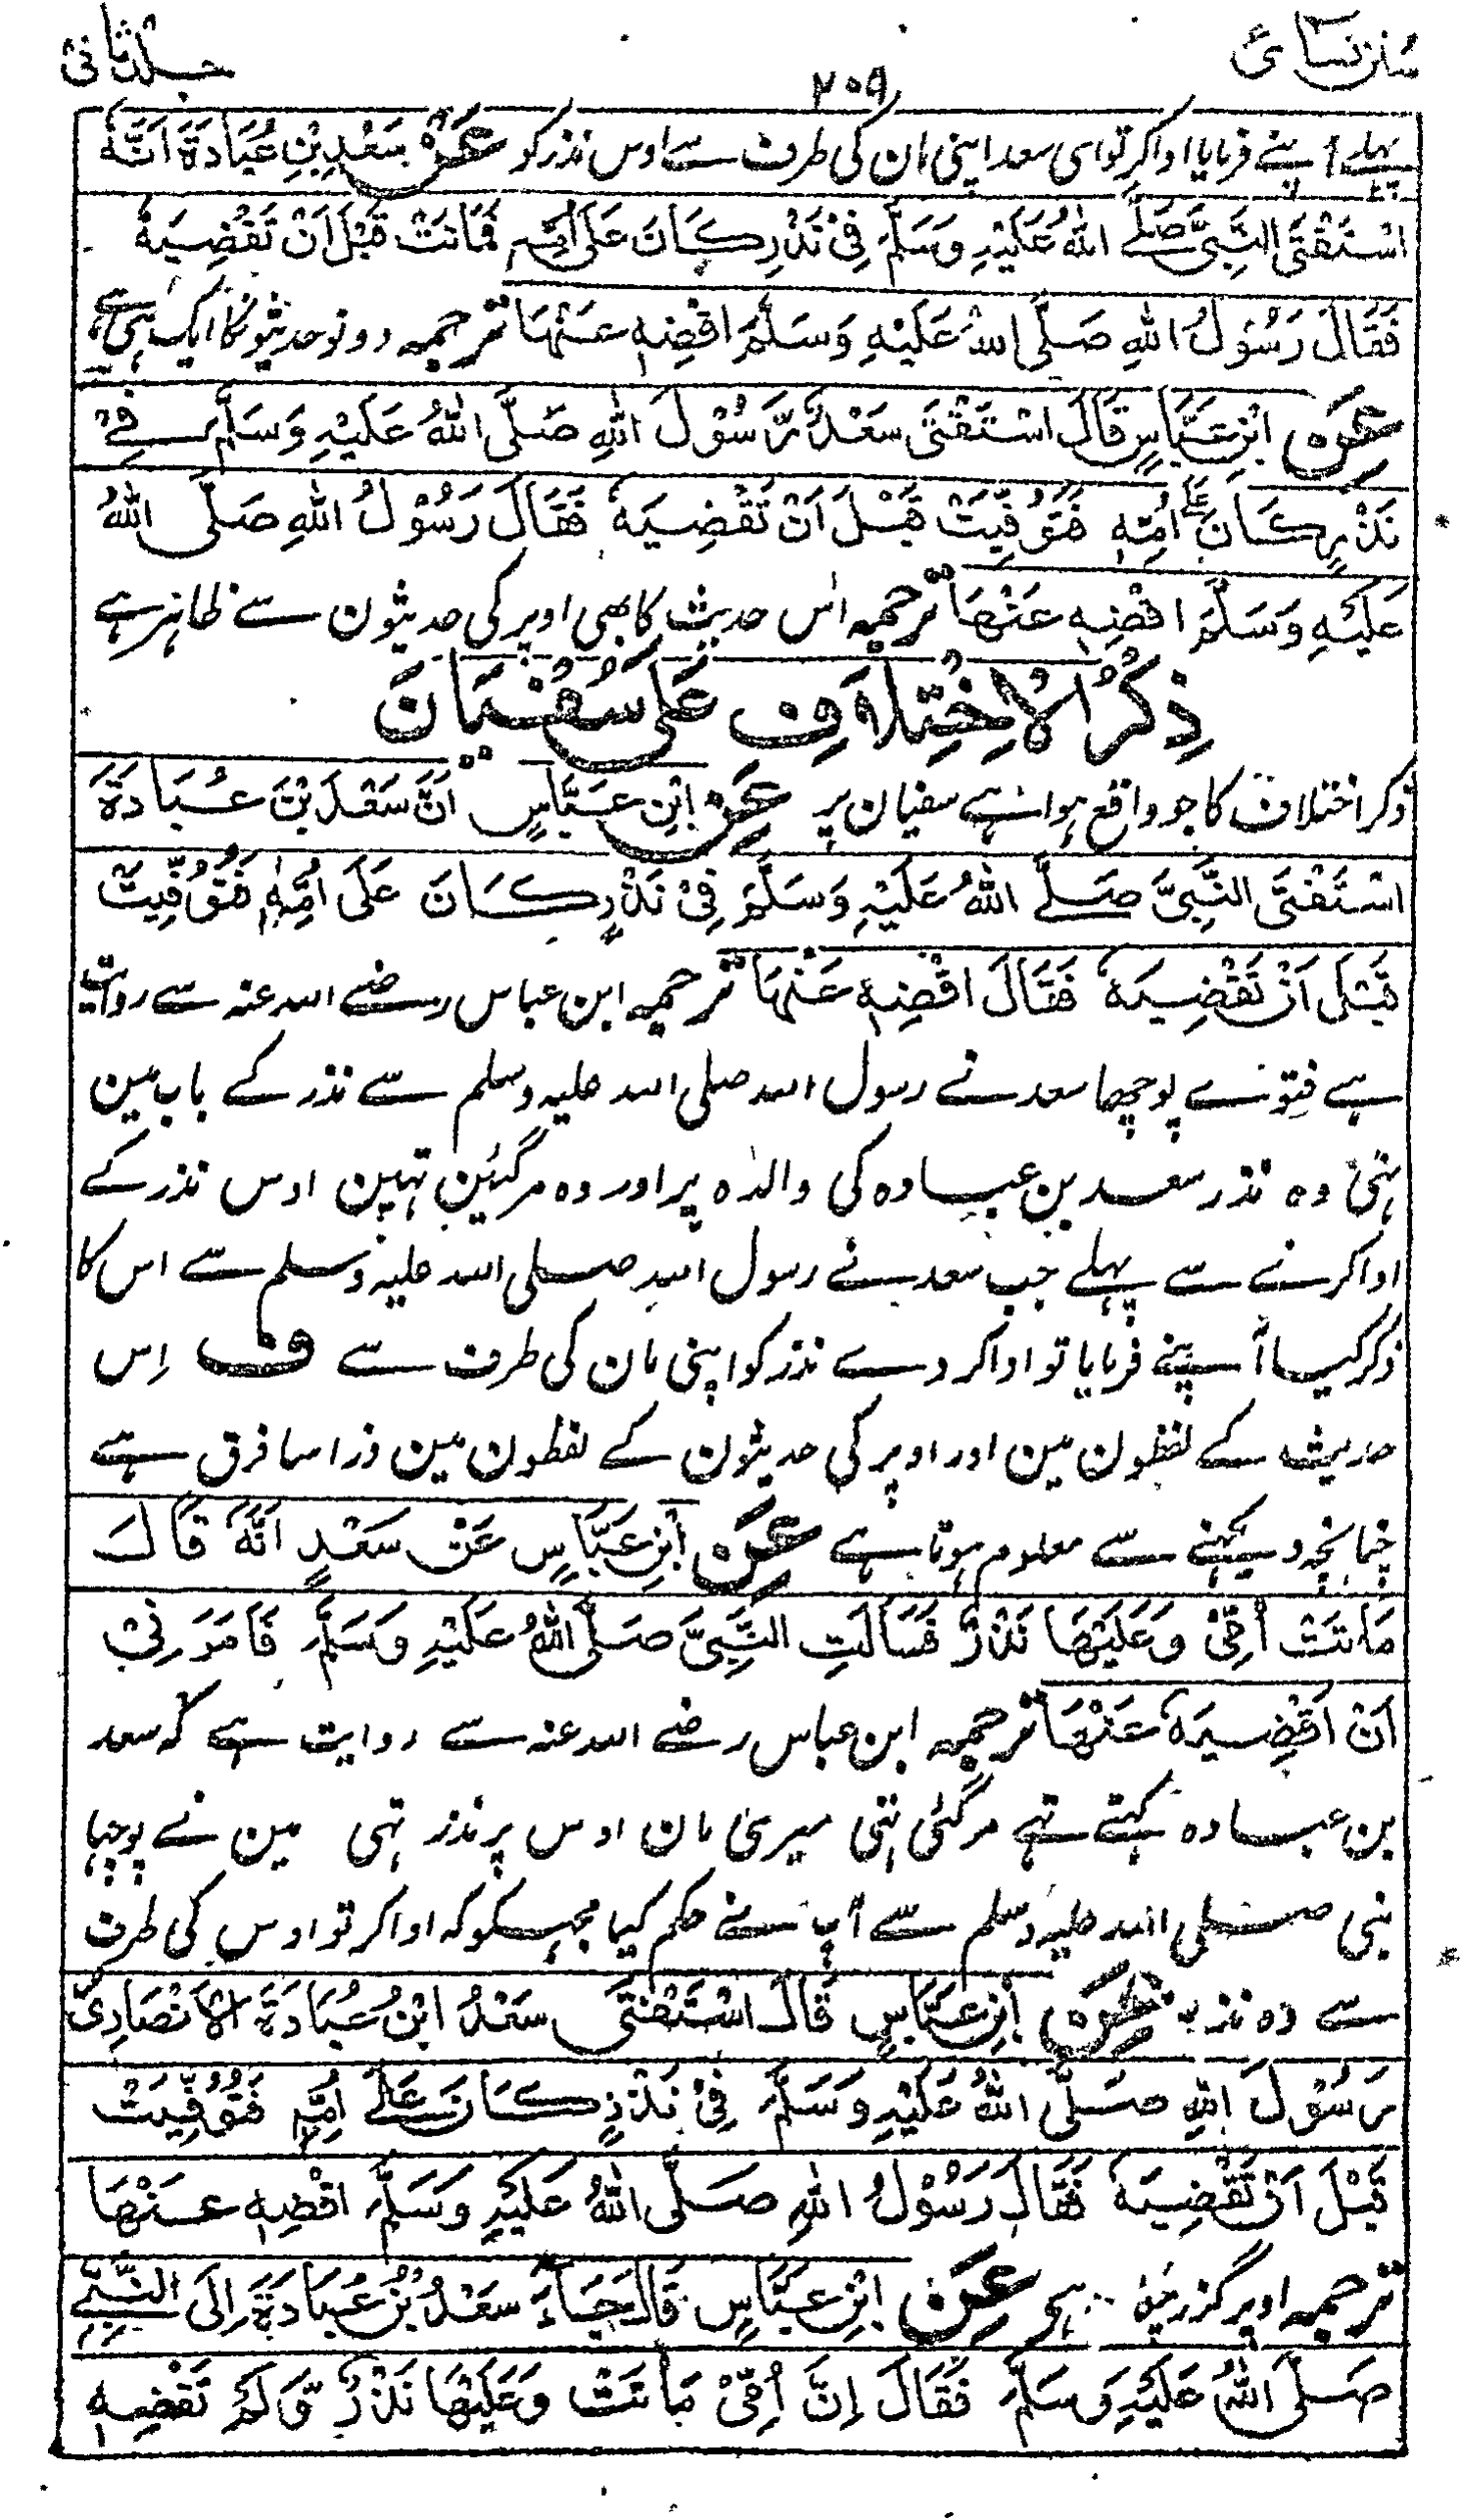 سنن نسائی
۲۰۹
جلد ثانی
پہلے آپنے فرمایا ادا کر تو ای سعد اپنی مان کی طرف سے اوس نذر کو عَنْ سَعْدِ بْنِ عُبَادَةَ اَنَّهٗ
اسْتَفْتَى النَّبِيَّ صَلَّے اللهُ عَلَيْهِ وَسَلَّمَ فِيْ نَذْرٍ كَانَ عَلٰى اُمِّهٖ فَمَاتَتْ قَبْلَ اَنْ تَقْضِيَهٗ
فَقَالَ رَسُوْلُ اللهِ صَلَّى اللهُ عَلَيْهِ وَسَلَّمَ اقْضِهٖ عَنْهَا ترجمہ دونو حدیثونکا ایک ہی ہے
عَنِ ابْنِ عَبَّاسٍ قَالَ اسْتَفْتٰى سَعْدٌ رَّسُوْلَ اللهِ صَلَّى اللهُ عَلَيْهِ وَسَلَّمَ فِيْ
نَذْرٍ كَانَ عَلٰى اُمِّهٖ فَتُوُفِّيَتْ قَبْلَ اَنْ تَقْضِيَهٗ فَقَالَ رَسُوْلُ اللهِ صَلَّى اللهُ
عَلَيْهِ وَسَلَّمَ اقْضِهٖ عَنْهَا ترجمہ اس حدیث کا بھی اوپر کی حدیثون سے ظاہر ہے
ذِكْرُ الْاِخْتِلَافِ عَلٰى سُفْيَانَ
ذکر اختلاف کا جو واقع ہوا ہے سفیان پر عَنِ ابْنِ عَبَّاسٍ اَنَّ سَعْدَ بْنَ عُبَادَةَ
اسْتَفْتَى النَّبِيَّ صَلَّے اللهُ عَلَيْهِ وَسَلَّمَ فِيْ نَذْرٍ كَانَ عَلٰى اُمِّهٖ فَتُوُفِّيَتْ
قَبْلَ اَنْ تَقْضِيَهٗ فَقَالَ اقْضِهٖ عَنْهَا ترجمہ ابن عباس رضے اللہ عنہ سے روایت
ہے فتوے پوچھا سعد نے رسول اللہ صلی اللہ علیہ وسلم سے نذر کے باب مین
تہی وہ نذر سعد بن عبادہ کی والدہ پر اور وہ مرگئین تہین اوس نذر کے
ادا کرنے سے پہلے جب سعد نے رسول اللہ صلی اللہ علیہ وسلم سے اس کا
ذکر کیا آپنے فرمایا تو ادا کر دے نذر کو اپنی مان کی طرف سے ف اس
حدیث کے لفظون مین اور اوپر کی حدیثون کے لفظون مین ذرا سا فرق ہے
چنانچہ دیکھنے سے معلوم ہوتا ہے عَنِ ابْنِ عَبَّاسٍ عَنْ سَعْدٍ اَنَّهٗ قَالَ
مَاتَتْ اُمِّيْ وَعَلَيْهَا نَذْرٌ فَسَاَلْتِ النَّبِيَّ صَلَّى اللهُ عَلَيْهِ وَسَلَّمَ فَاَمَرَنِيْ
اَنْ اَقْضِيَهٗ عَنْهَا ترجمہ ابن عباس رضے اللہ عنہ سے روایت ہے کہ سعد
بن عبادہ کہتے تہے مرگئی تہی میری مان اوس پر نذر تہی مین نے پوچہا
نبی صلی اللہ علیہ وسلم سے آپ نے حکم کیا مجہکو کہ ادا کر تو اوس کی طرف
سے وہ نذر عَنِ ابْنِ عَبَّاسٍ قَالَ اسْتَفْتٰى سَعْدُ ابْنُ عُبَادَةَ الْاَنْصَارِيُّ
رَسُوْلَ اللهِ صَلَّى اللهُ عَلَيْهِ وَسَلَّمَ فِيْ نَذْرٍ كَانَ عَلٰے اُمِّهٖ فَتُوُفِّيَتْ
قَبْلَ اَنْ تَقْضِيَهٗ فَقَالَ رَسُوْلُ اللهِ صَلَّى اللهُ عَلَيْهِ وَسَلَّمَ اقْضِهٖ عَنْهَا
ترجمہ اوپر گزر عَنِ ابْنِ عَبَّاسٍ قَالَ جَاءَ سَعْدُ بْنُ عُبَادَةَ اِلَى النَّبِيِّ
صَلَّى اللهُ عَلَيْهِ وَسَلَّمَ فَقَالَ اِنَّ اُمِّيْ مَاتَتْ وَعَلَيْهَا نَذْرٌ وَّلَمْ تَقْضِهٖ